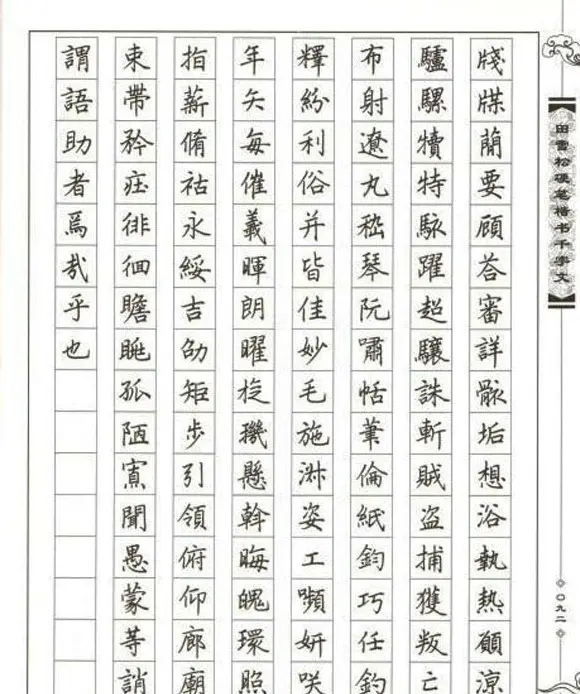 牋牒蕳要顧荅審詳骸垢想浴執熱願涼
驢騾犢特駭躍超驤誅斬賊盗捕獲叛亡
布射遼丸嵇琴阮嘯恬筆倫紙鈞巧任釣
釋紛利俗并皆佳妙毛施淑姿工嚬妍咲
年矢每催羲暉朗曜旋璣懸斡晦魄環照
指薪脩祜永綏吉劭矩步引領俯仰廊廟
束帶矜莊徘徊瞻眺孤陋寡聞愚蒙等誚
謂語助者焉哉乎也
田雪松硬笔楷书千字文
〇九二